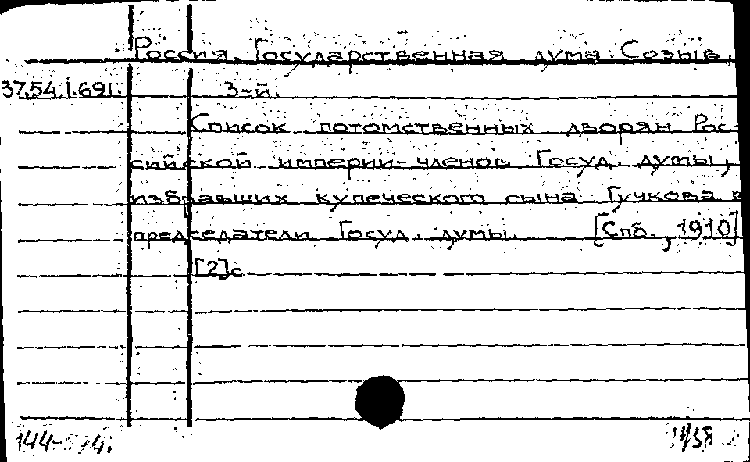 Россия. Государственная дума. Созыв,
37.54.1.691. 3-й.
Список потомственных дворян Рос-
сийской империи-членов Госуд. думы,
избравших купеческого сына Гучкова в
председатели Госуд. думы. [Спб., 1910]
[2]с